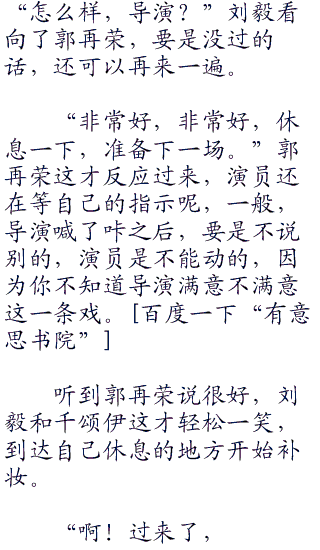 “怎么样，导演？”刘毅看
向了郭再荣，要是没过的
话，还可以再来一遍。
“非常好，非常好，休
息一下，准备下一场。”郭
再荣这才反应过来，演员还
在等自己的指示呢，一般，
导演喊了咔之后，要是不说
别的，演员是不能动的，因
为你不知道导演满意不满意
这一条戏。[百度一下“有意
思书院”]
听到郭再荣说很好，刘
毅和千颂伊这才轻松一笑，
到达自己休息的地方开始补
妆。
“啊！过来了，